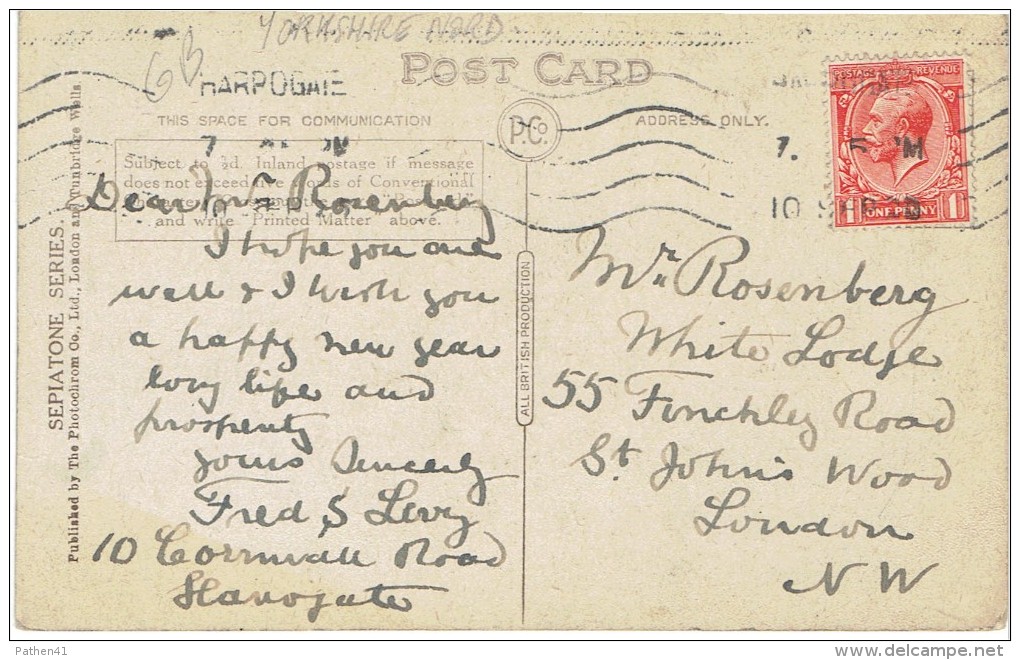 YORKSHIRE NORD
GB
HARROGATE
POST CARD
THIS SPACE FOR COMMUNICATION
P.Co
ADDRESS ONLY.
POSTAGE REVENUE
ONE PENNY
1 1
7.
10 SEP
Subject to ½d. Inland postage if message
does not exceed five words of Conventional
and write "Printed Matter" above.
Dear Mr Rosenberg
I hope you are
well & I wish you
a happy new year
long life and
prosperity
yours Sincerely
Fred S Levy
10 Cornwall Road
Harrogate
Mr Rosenberg
White Lodge
55 Finchley Road
St Johns Wood
London
N W
ALL BRITISH PRODUCTION
SEPIATONE SERIES.
Published by The Photochrom Co., Ltd., London and Tunbridge Wells.
Pathen41
delcampe.net